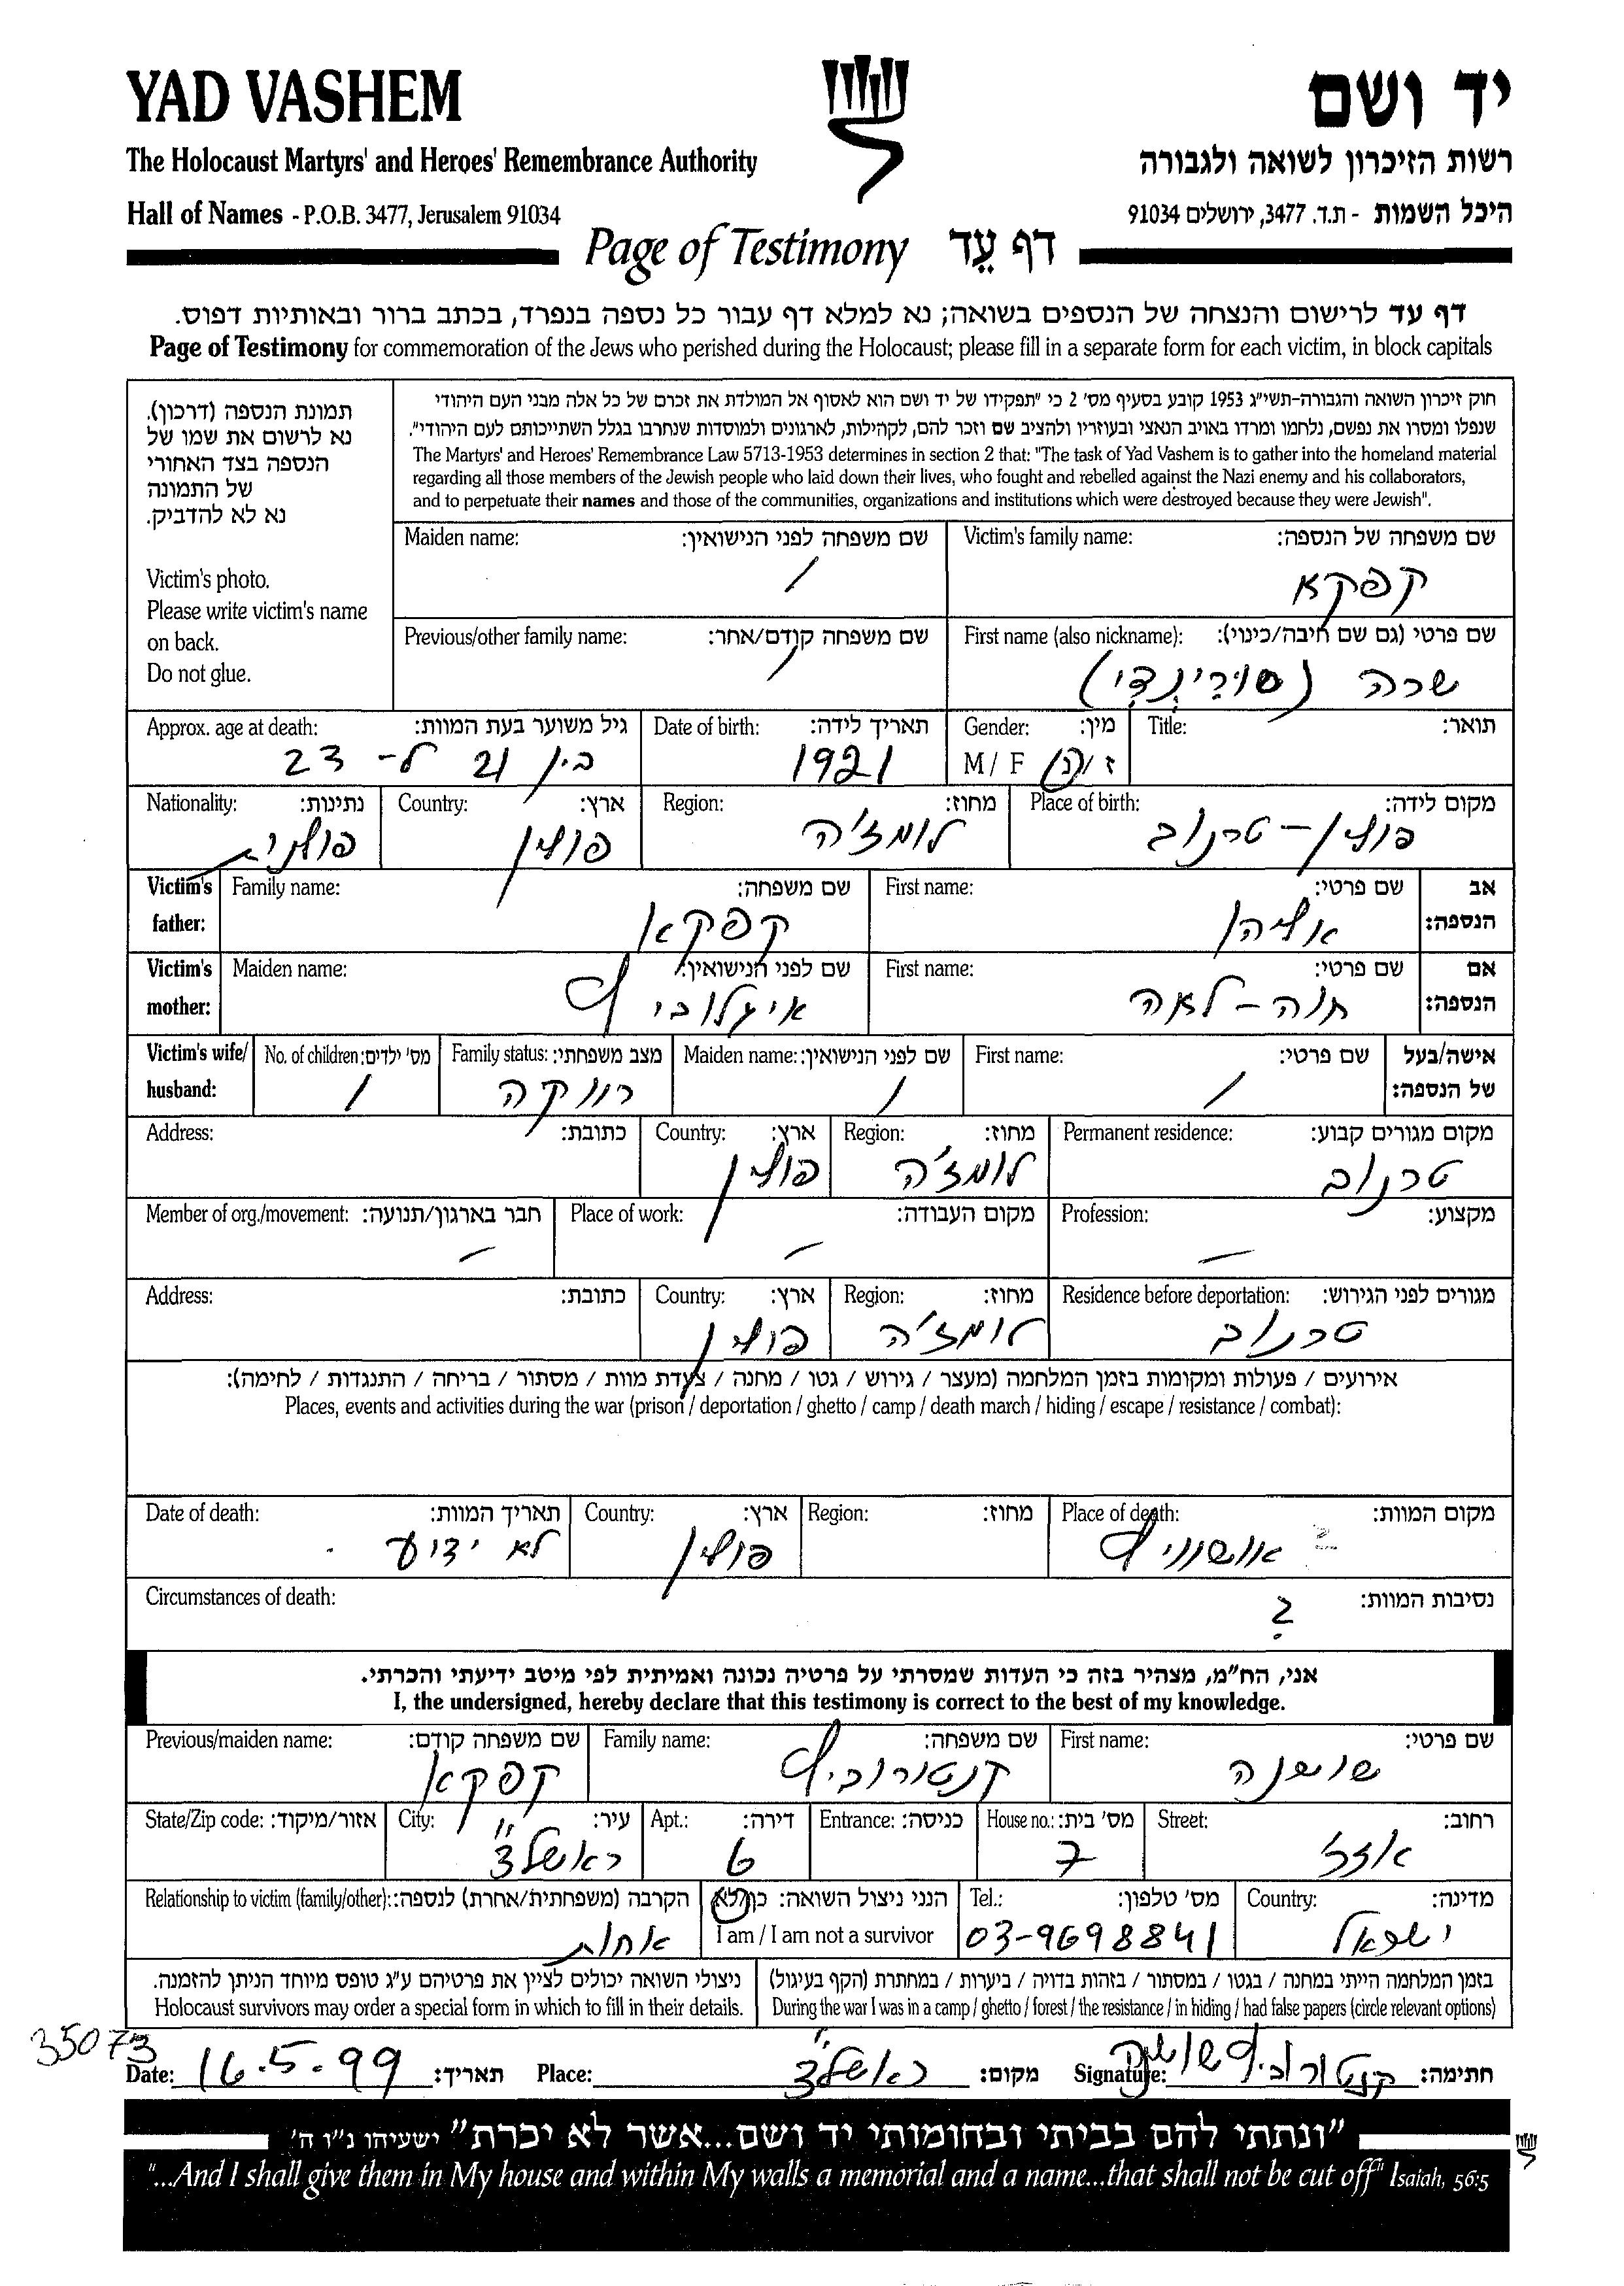 YAD VASHEM
יד ושם
The Holocaust Martyrs' and Heroes' Remembrance Authority
רשות הזיכרון לשואה ולגבורה
Hall of Names - P.O.B. 3477, Jerusalem 91034
היכל השמות - ת.ד. 3477, ירושלים 91034
Page of Testimony דף עֵד
דף עד לרישום והנצחה של הנספים בשואה; נא למלא דף עבור כל נספה בנפרד, בכתב ברור ובאותיות דפוס.
Page of Testimony for commemoration of the Jews who perished during the Holocaust; please fill in a separate form for each victim, in block capitals
תמונת הנספה (דרכון).
נא לרשום את שמו של
הנספה בצד האחורי
של התמונה
נא לא להדביק.
Victim's photo.
Please write victim's name
on back.
Do not glue.
חוק זיכרון השואה והגבורה-תשי"ג 1953 קובע בסעיף מס' 2 כי "תפקידו של יד ושם הוא לאסוף אל המולדת את זכרם של כל אלה מבני העם היהודי
שנפלו ומסרו את נפשם, נלחמו ומרדו באויב הנאצי ובעוזריו ולהציב שם וזכר להם, לקהילות, לארגונים ולמוסדות שנחרבו בגלל השתייכותם לעם היהודי".
The Martyrs' and Heroes' Remembrance Law 5713-1953 determines in section 2 that: "The task of Yad Vashem is to gather into the homeland material
regarding all those members of the Jewish people who laid down their lives, who fought and rebelled against the Nazi enemy and his collaborators,
and to perpetuate their names and those of the communities, organizations and institutions which were destroyed because they were Jewish".
Victim's family name: שם משפחה של הנספה:
קפקא
Maiden name: שם משפחה לפני הנישואין:
/
First name (also nickname): שם פרטי (גם שם חיבה/כינוי):
שרה (סורינדי)
Previous/other family name: שם משפחה קודם/אחר:
/
Title: תואר:
Gender: מין:
M / F ז / נ
Date of birth: תאריך לידה:
1921
Approx. age at death: גיל משוער בעת המוות:
בין 21 ל- 23
Place of birth: מקום לידה:
פולין - טרנוב
Region: מחוז:
לומז'ה
Country: ארץ:
פולין
Nationality: נתינות:
פולנית
Victim's father: אב הנספה:
First name: שם פרטי:
אליהו
Family name: שם משפחה:
קפקא
Victim's mother: אם הנספה:
First name: שם פרטי:
חנה-לאה
Maiden name: שם לפני הנישואין:
איגלוביץ
Victim's wife/husband: אישה/בעל של הנספה:
First name: שם פרטי:
/
Maiden name: שם לפני הנישואין:
/
Family status: מצב משפחתי:
רווקה
No. of children: מס' ילדים:
/
Permanent residence: מקום מגורים קבוע:
טרנוב
Region: מחוז:
לומז'ה
Country: ארץ:
פולין
Address: כתובת:
Profession: מקצוע:
-
Place of work: מקום העבודה:
-
Member of org./movement: חבר בארגון/תנועה:
-
Residence before deportation: מגורים לפני הגירוש:
טרנוב
Region: מחוז:
לומז'ה
Country: ארץ:
פולין
Address: כתובת:
אירועים / פעולות ומקומות בזמן המלחמה (מעצר / גירוש / גטו / מחנה / צעדת מוות / מסתור / בריחה / התנגדות / לחימה):
Places, events and activities during the war (prison / deportation / ghetto / camp / death march / hiding / escape / resistance / combat):
Place of death: מקום המוות:
אושוויץ
Region: מחוז:
Country: ארץ:
פולין
Date of death: תאריך המוות:
לא ידוע
Circumstances of death: נסיבות המוות:
?
אני, הח"מ, מצהיר בזה כי העדות שמסרתי על פרטיה נכונה ואמיתית לפי מיטב ידיעתי והכרתי.
I, the undersigned, hereby declare that this testimony is correct to the best of my knowledge.
First name: שם פרטי:
שושנה
Family name: שם משפחה:
קנטורוביץ
Previous/maiden name: שם משפחה קודם:
קפקא
Street: רחוב:
House no.: מס' בית:
7
Entrance: כניסה:
Apt.: דירה:
6
City: עיר:
ראשל"צ
State/Zip code: אזור/מיקוד:
Country: מדינה:
ישראל
Tel.: מס' טלפון:
03-9698841
הנני ניצול השואה: כן/לא
I am / I am not a survivor
Relationship to victim (family/other): הקרבה (משפחתית/אחרת) לנספה:
אחות
בזמן המלחמה הייתי במחנה / בגטו / במסתור / בזהות בדויה / ביערות / במחתרת (הקף בעיגול)
During the war I was in a camp / ghetto / forest / the resistance / in hiding / had false papers (circle relevant options)
ניצולי השואה יכולים לציין את פרטיהם ע"ג טופס מיוחד הניתן להזמנה.
Holocaust survivors may order a special form in which to fill in their details.
35073
Date: 16.5.99 תאריך:
Place: ראשל"צ מקום:
Signature: קנטורוביץ שושנה חתימה:
"ונתתי להם בביתי ובחומותי יד ושם...אשר לא יכרת" ישעיהו נ"ו ה'
"...And I shall give them in My house and within My walls a memorial and a name...that shall not be cut off" Isaiah, 56:5